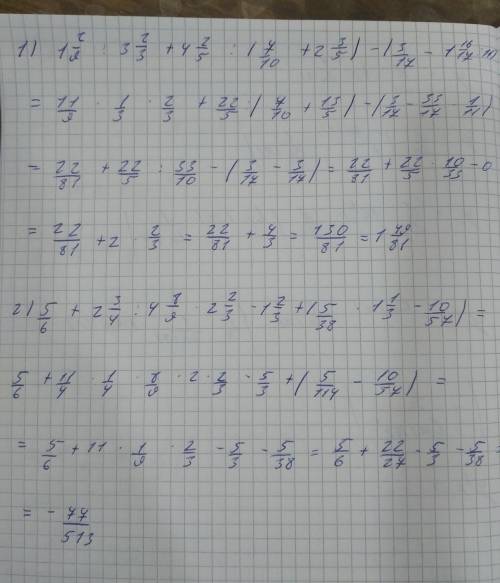 1) 1 2/9 : 3 2/3 + 4 2/5 : (7/10 + 2 3/5) - (3/17 - 1 16/17 : 10
= 11/9 · 1/3 · 2/3 + 22/5 · (7/10 + 13/5) - (3/17 - 33/17 · 1/11)
= 22/81 + 22/5 : 33/10 - (3/17 - 3/17) = 22/81 + 22/5 · 10/33 - 0
= 22/81 + 2 · 2/3 = 22/81 + 4/3 = 130/81 = 1 49/81
2) 5/6 + 2 3/4 : 4 1/9 · 2 2/3 - 1 2/3 + (5/38 · 1 1/3 - 10/57) =
5/6 + 11/4 · 1/4 · 1/9 · 2 · 2/3 · 5/3 + (5/114 - 10/57) =
= 5/6 + 11 · 1/9 · 2/3 - 5/3 - 5/38 = 5/6 + 22/27 - 5/3 - 5/38 =
= - 77/513